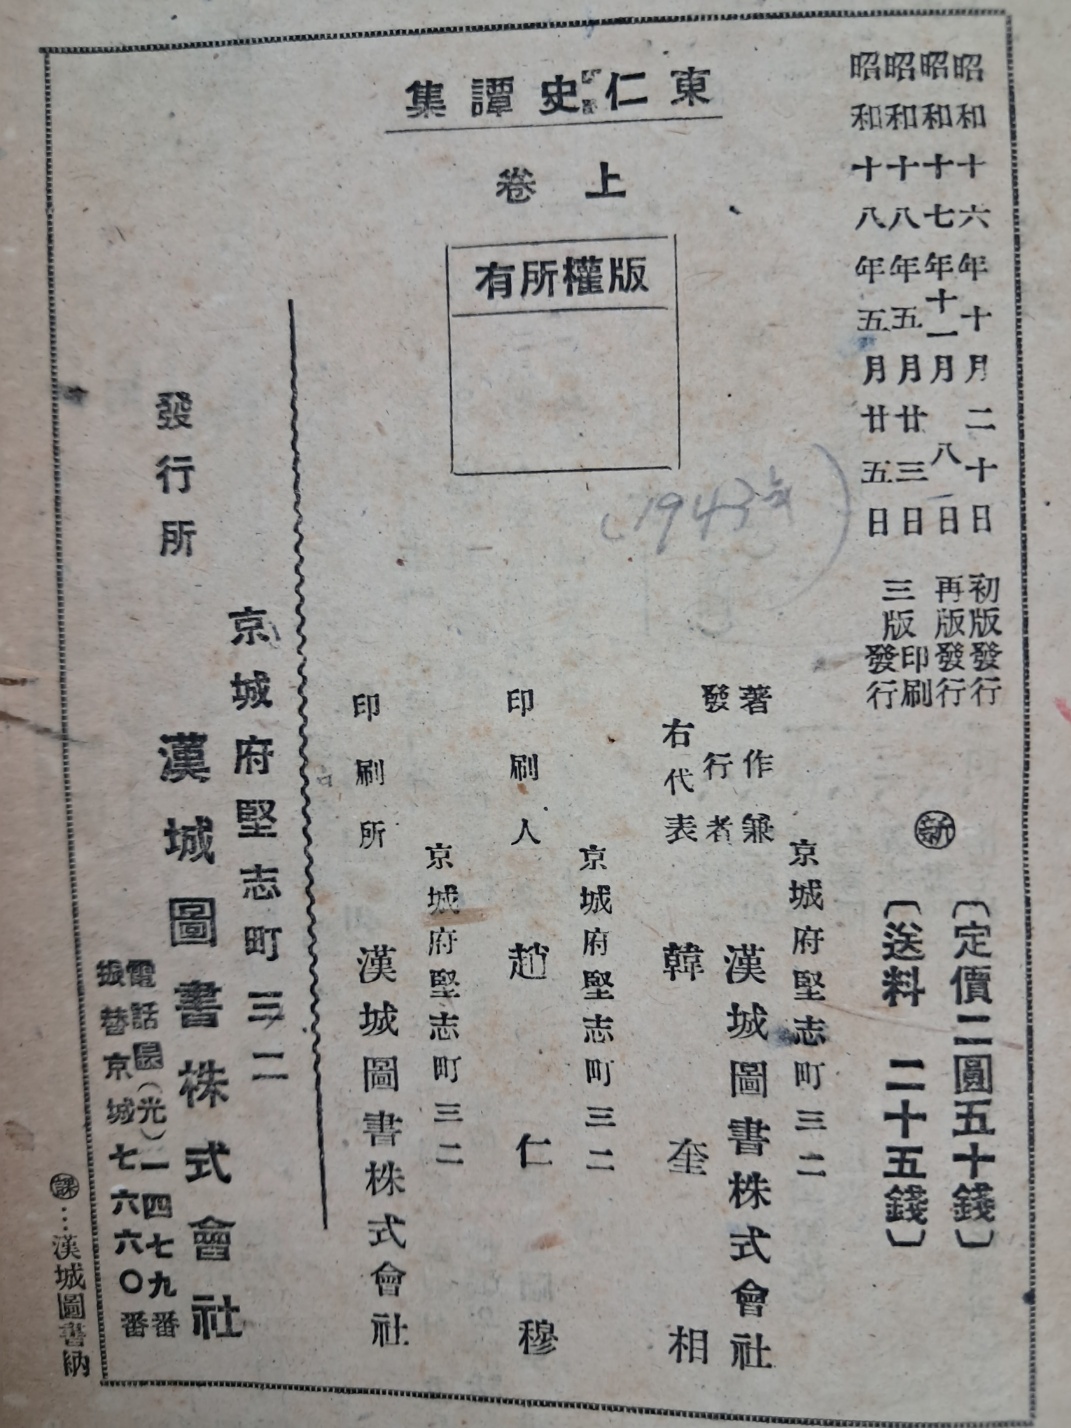 昭和十六年十月二十日 初版發行
昭和十七年十一月八日 再版發行
昭和十八年五月廿三日 三版印刷
昭和十八年五月廿五日 發行
東仁史譚集
上卷
版權所有
(1943年)
㊟新
〔定價二圓五十錢〕
〔送料 二十五錢〕
京城府堅志町三二
著作兼發行者 漢城圖書株式會社
右代表 韓奎相
京城府堅志町三二
印刷人 趙仁穆
京城府堅志町三二
印刷所 漢城圖書株式會社
京城府堅志町三二
發行所 漢城圖書株式會社
電話(光)一四七九番
振替京城七六六〇番
…漢城圖書納